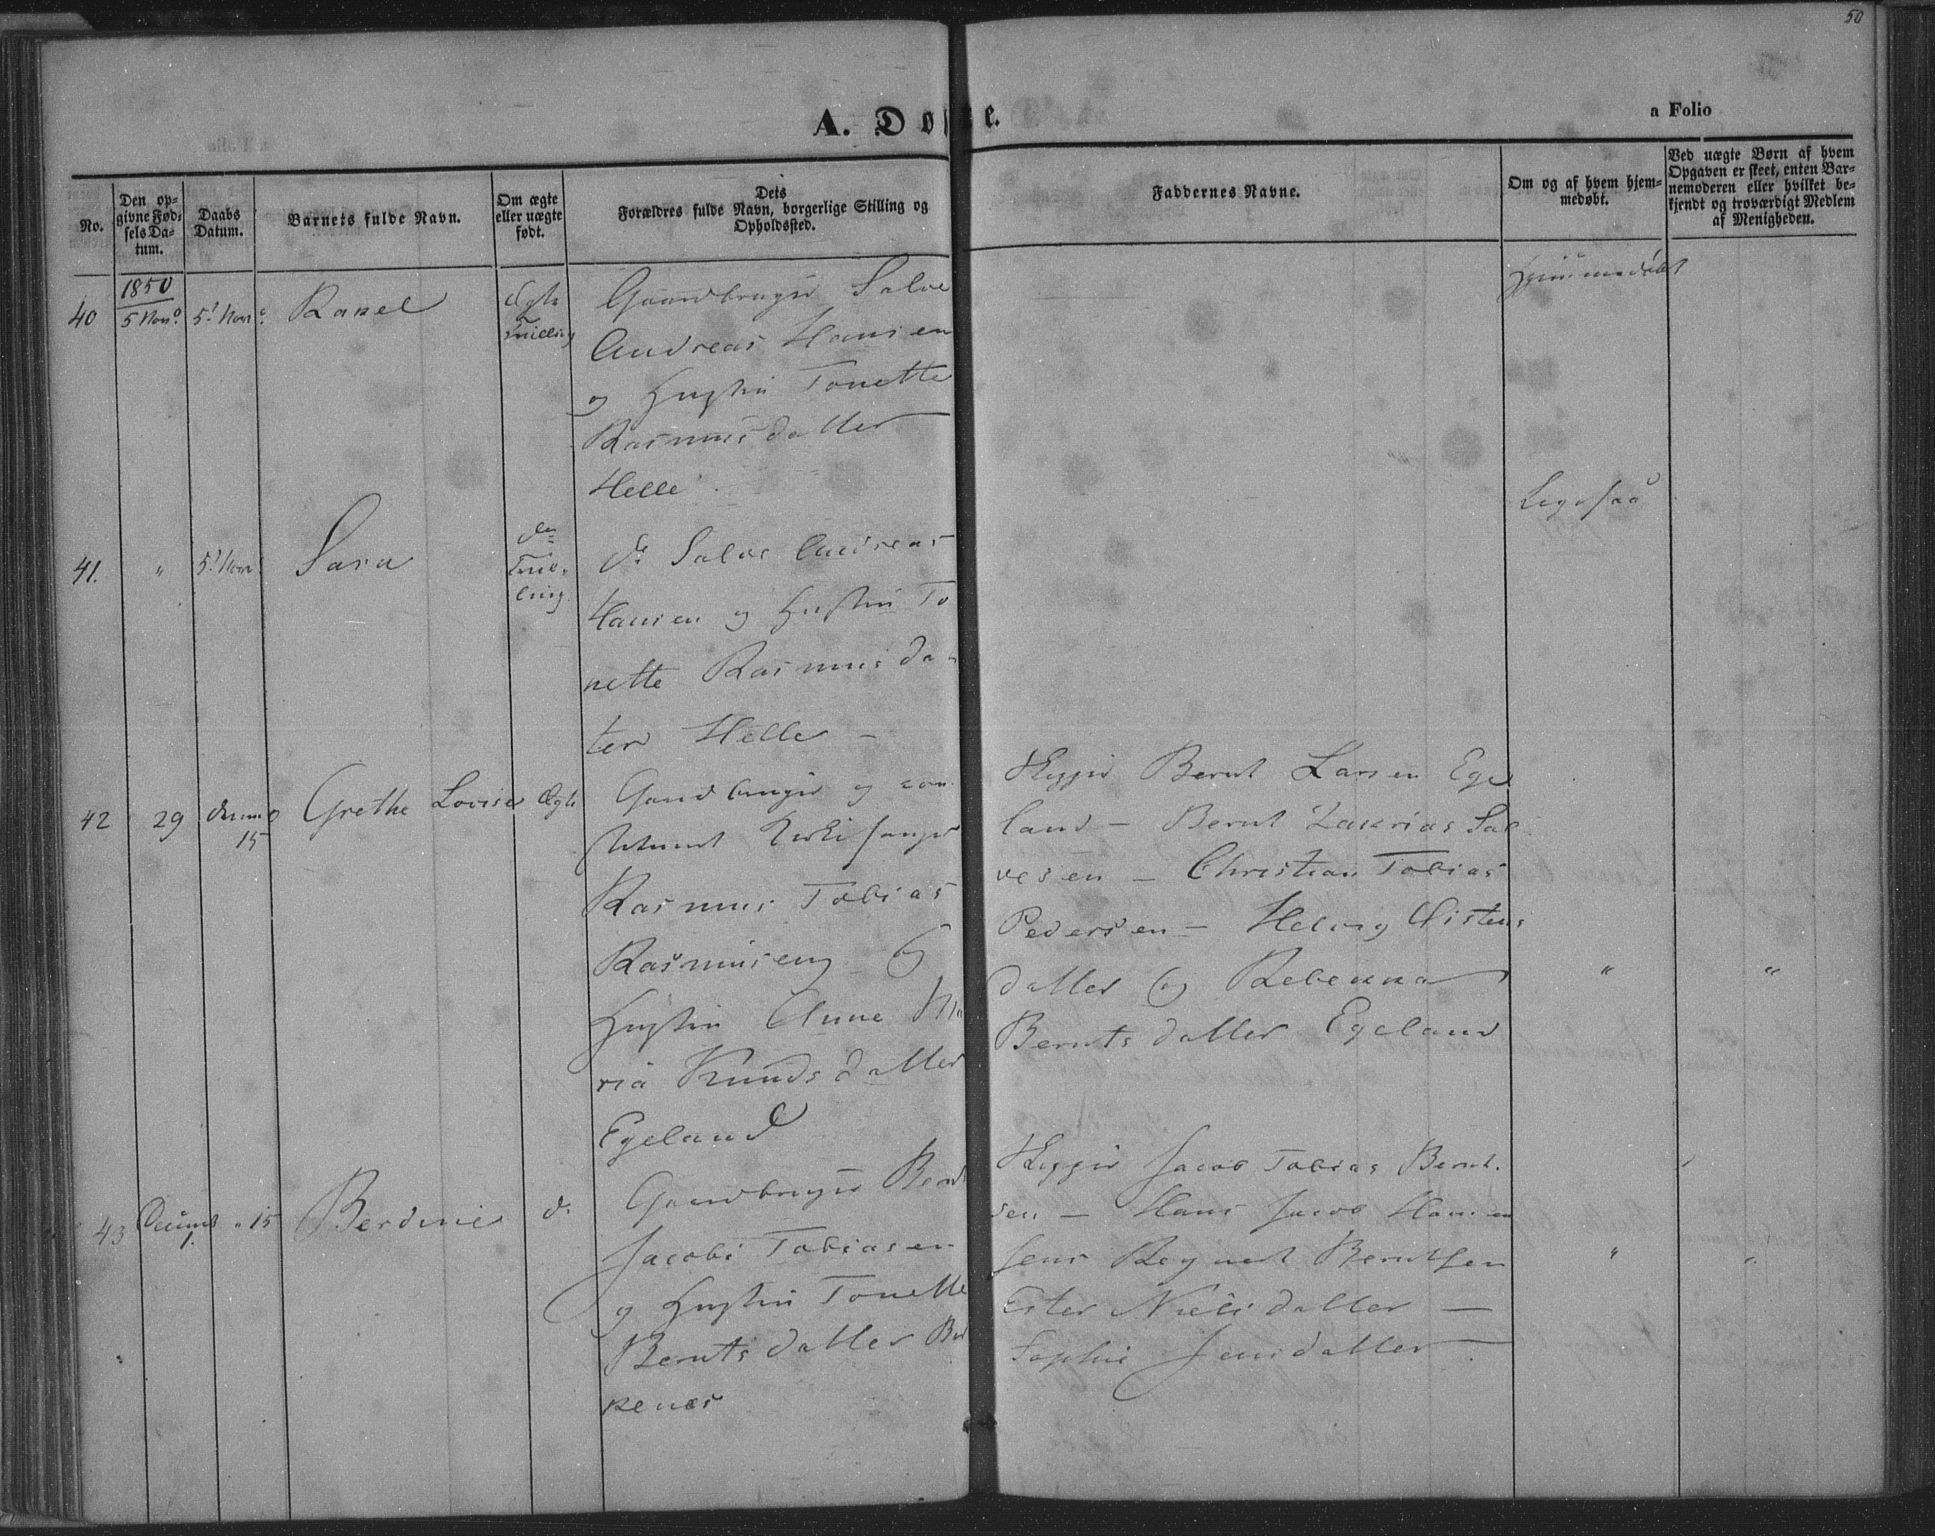 50
A. Døbte.
a Folio
No.
Den op-
givne Fød-
sels Da-
tum.
Daabs
Datum.
Barnets fulde Navn.
Om ægte
eller uægte
født.
Dets
Forældres fulde Navn, borgerlige Stilling og
Opholdssted.
Faddernes Navne.
Om og af hvem hjem-
medøbt.
Ved uægte Børn af hvem
Opgaven er skeet, enten Bar-
nemoderen eller hvilket be-
kjendt og troværdigt Medlem
af Menigheden.
40
1850
5 Nov.
5 Nov.
Rakel
Ægte
Tvilling
Gaardbruger Salve
Andreas Hansen
og Hustru Tonette
Rasmusdatter
Helle
Hjemmedøbt
41.
"
5 Nov.
Sara
do
Tvil-
ling
do Salve Andreas
Hansen og Hustru To
nette Rasmusda-
ter Helle -
Ligesaa
42
29
15
Grethe Lovise
Ægte
Gaardbruger og con
stitueret Kirkesanger
Rasmus Tobias
Rasmussen og
Hustru Anne Ma
ria Knudsdatter
Egeland
Bernt Larsen Ege
land - Bernt Zakrias Sal
vesen - Christian Tobias
Pedersen - Helvig Østens
datter og Rebekka
Berntsdatter Egeland
"
"
43
Decembr
1.
" 15
Berdine
do
Gaardbruger Bernt
Jacobi Tobiasen
og Hustru Tonette
Berntsdatter
Jacob Tobias Bernt-
sen - Hans Jacob Hansen
Reynert Berntsen
Ester Nielsdatter -
Sophie Jensdatter
"
"